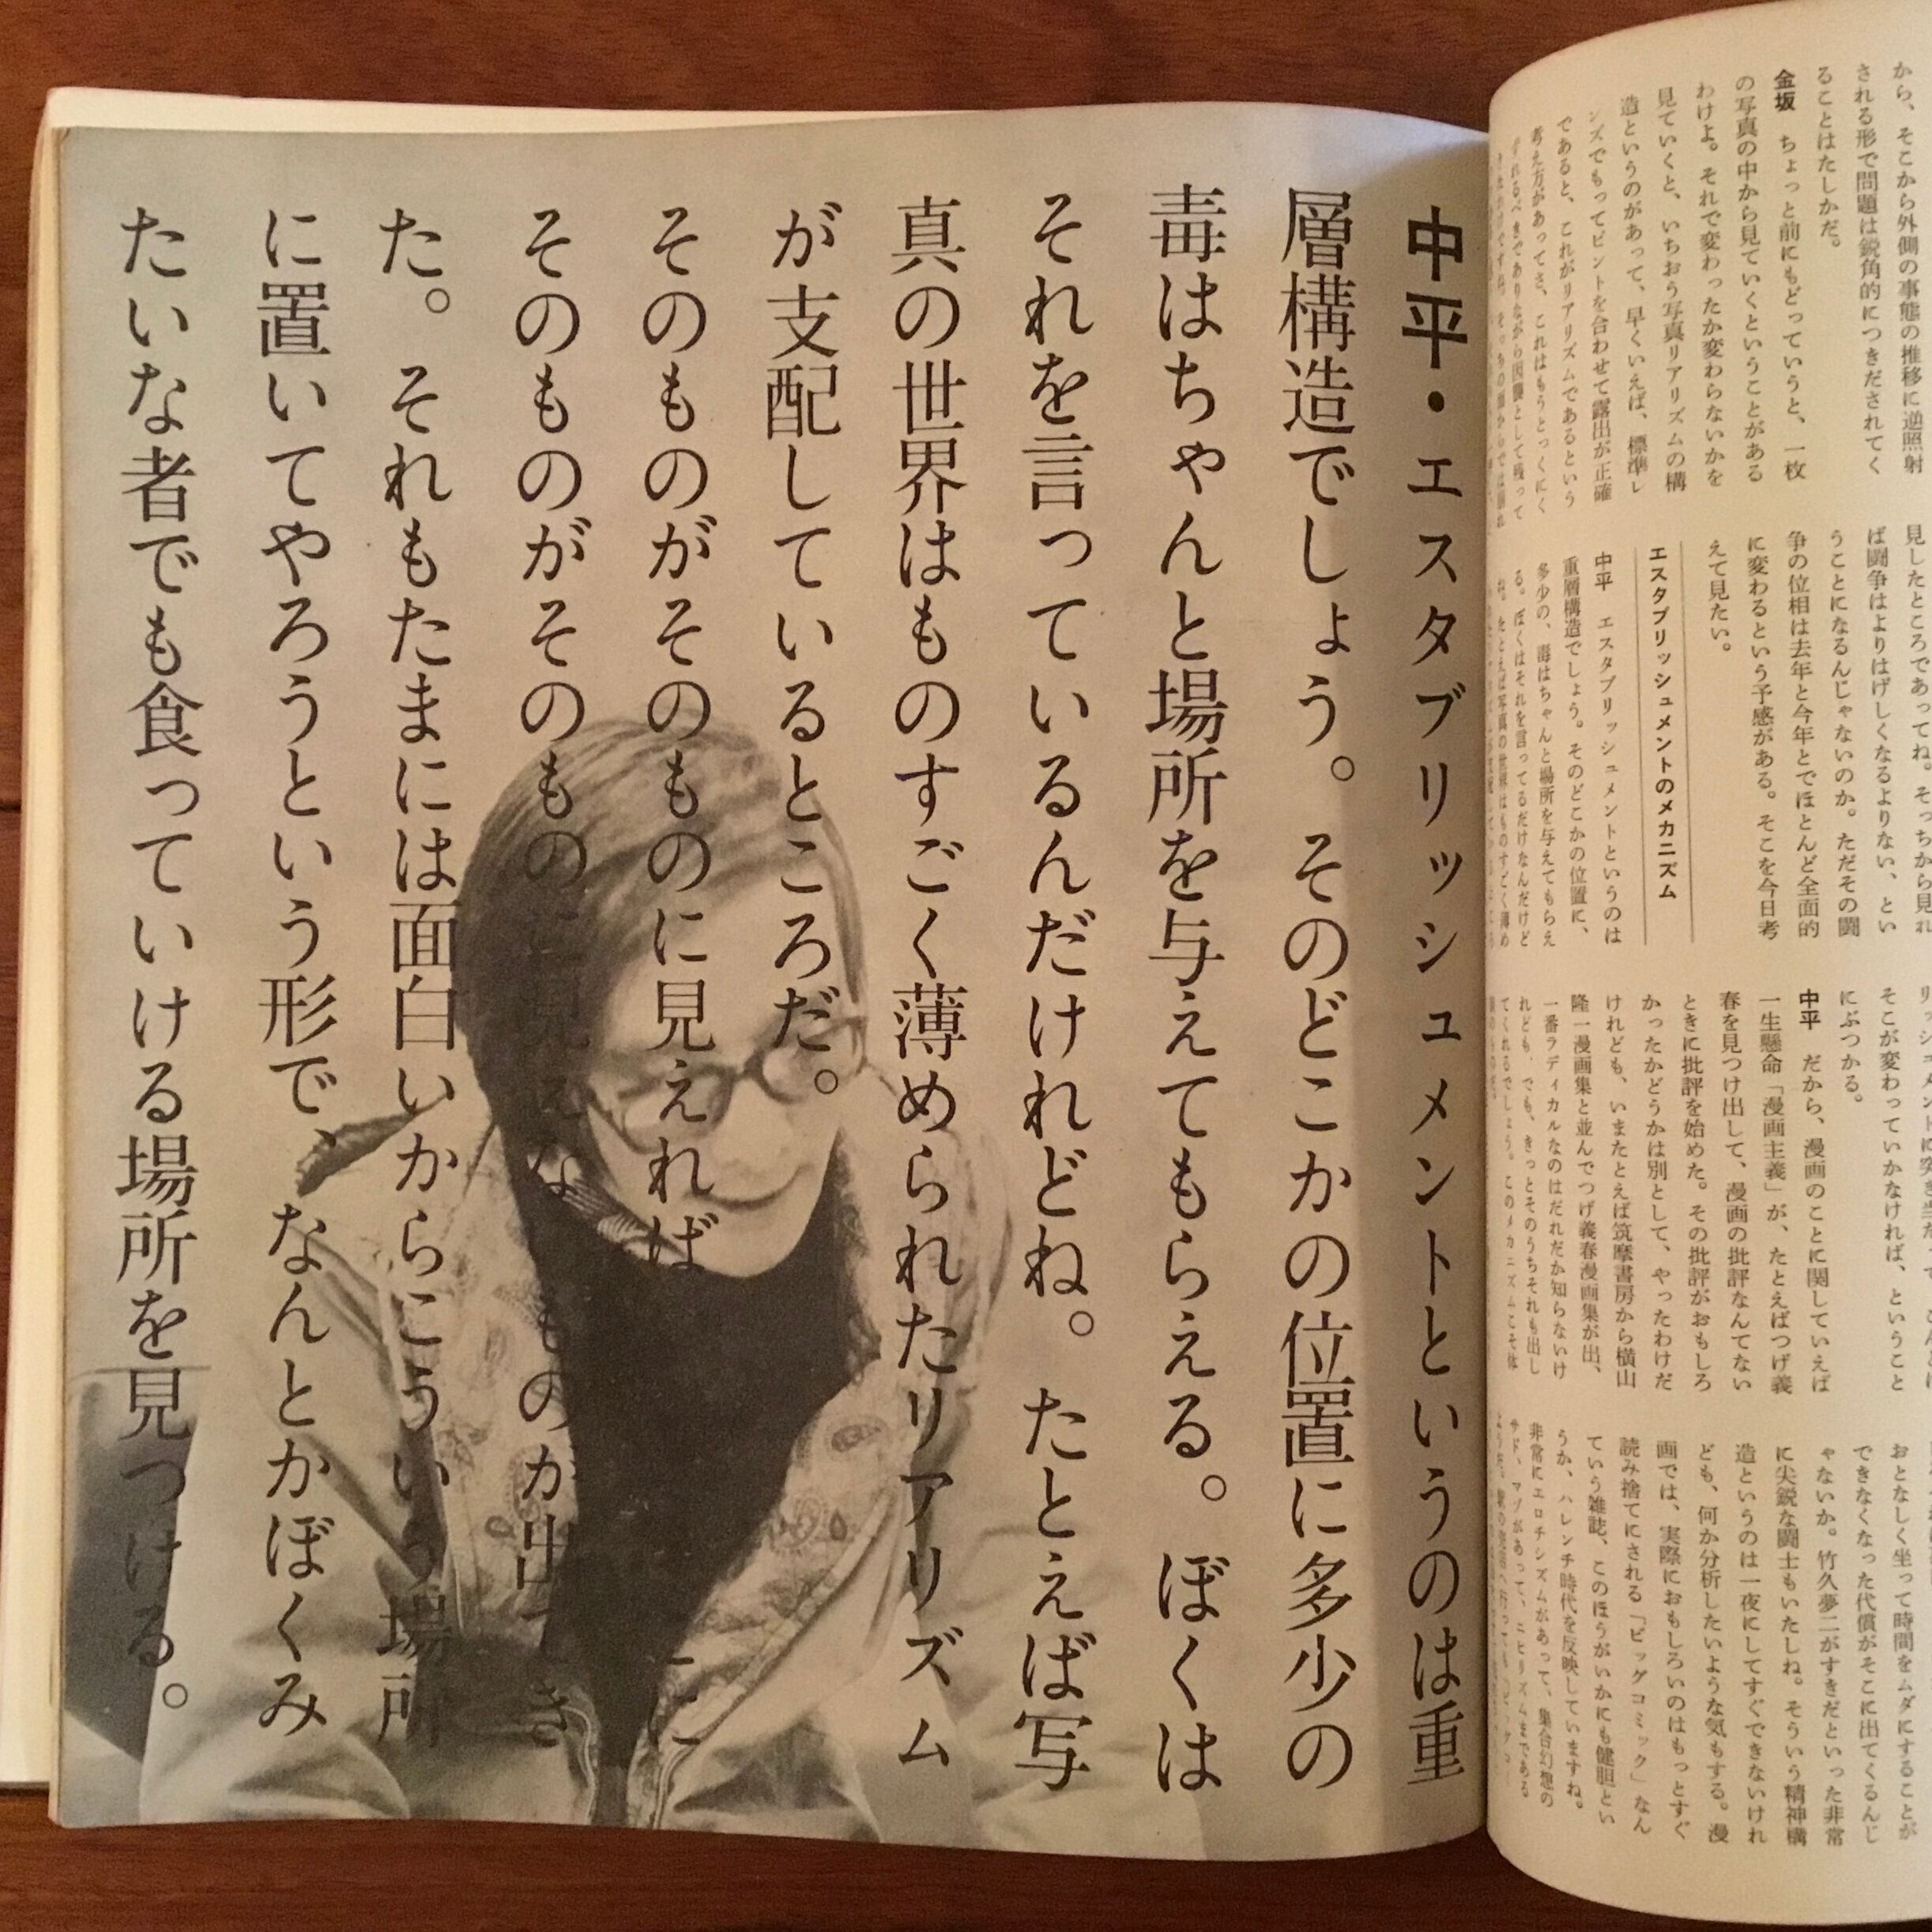 から、そこから外側の事態の推移に逆照射
される形で問題は鋭角的につきだされてく
ることはたしかだ。
金坂　ちょっと前にもどっていうと、一枚
の写真の中から見ていくということがある
わけよ。それで変わったか変わらないかを
見ていくと、いちおう写真リアリズムの構
造というのがあって、早くいえば、標準レ
ンズでもってピントを合わせて露出が正確
であると、これがリアリズムであるという
考え方があってさ、これはもうとっくにく
ずれるべきでありながら因襲として残って
見したところであってね。そっちから見れ
ば闘争はよりはげしくなるよりない、とい
うことになるんじゃないのか。ただその闘
争の位相は去年と今年とでほとんど全面的
に変わるという予感がある。そこを今日考
えて見たい。
エスタブリッシュメントのメカニズム
中平　エスタブリッシュメントというのは
重層構造でしょう。そのどこかの位置に、
多少の、毒はちゃんと場所を与えてもらえ
る。ぼくはそれを言ってるだけなんだけど
ね。たとえば写真の世界はものすごく薄め
そこが変わっていかなければ、ということ
にぶつかる。
中平　だから、漫画のことに関していえば
一生懸命「漫画主義」が、たとえばつげ義
春を見つけ出して、漫画の批評なんてない
ときに批評を始めた。その批評がおもしろ
かったかどうかは別として、やったわけだ
けれども、いまたとえば筑摩書房から横山
隆一漫画集と並んでつげ義春漫画集が出、
一番ラディカルなのはだれだか知らないけ
れども、でも、きっとそのうちそれも出し
てくれるでしょう。このメカニズムこそ体
おとなしく坐って時間をムダにすることが
できなくなった代償がそこに出てくるんじ
ゃないか。竹久夢二がすきだといった非常
に尖鋭な闘士もいたしね。そういう精神構
造というのは一夜にしてすぐできないけれ
ども、何か分析したいような気もする。漫
画では、実際におもしろいのはもっとすぐ
読み捨てにされる「ビッグコミック」なん
ていう雑誌、このほうがいかにも健胆とい
うか、ハレンチ時代を反映していますね。
非常にエロチシズムがあって、集合幻想の
中平・エスタブリッシュメントというのは重
層構造でしょう。そのどこかの位置に多少の
毒はちゃんと場所を与えてもらえる。ぼくは
それを言っているんだけれどね。たとえば写
真の世界はものすごく薄められたリアリズム
が支配しているところだ。
そのものがそのものに見えれば　ここに
そのものがそのものに見えないものが出てき
た。それもたまには面白いからこういう場所
に置いてやろうという形で、なんとかぼくみ
たいな者でも食っていける場所を見つける。